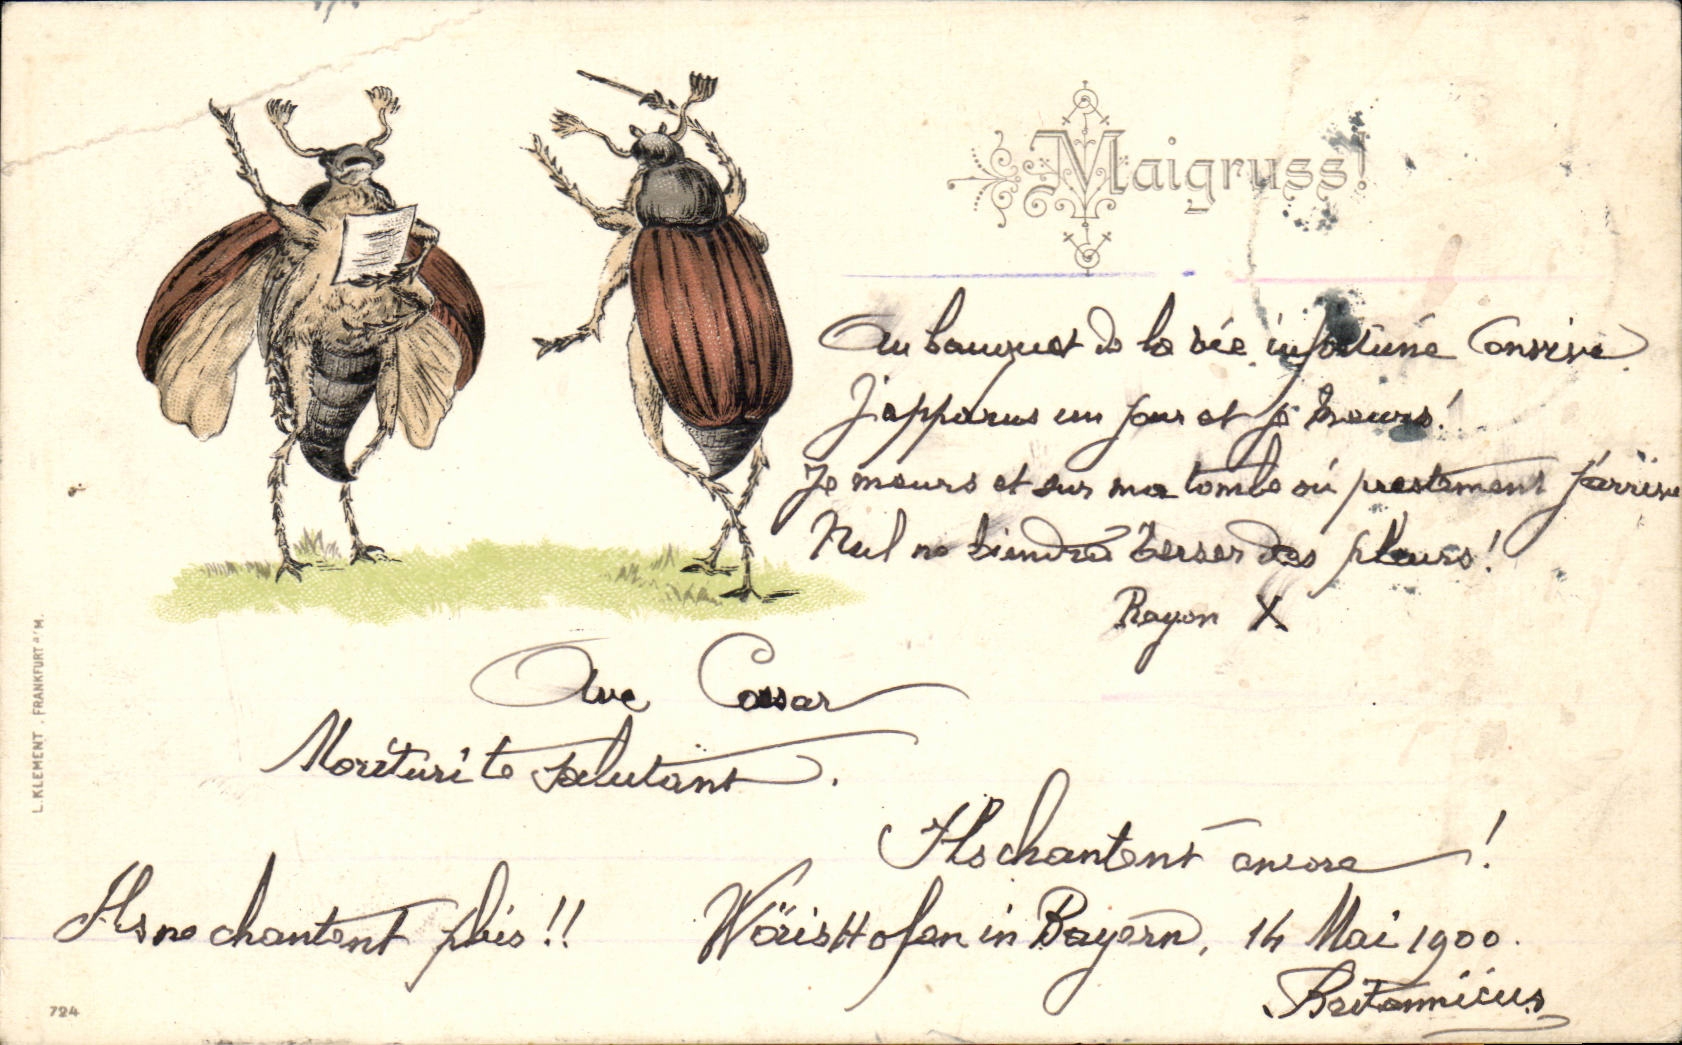 Maigruss!
Au banquet de la vie infortuné Convive
J'apparus un jour et je meurs!
Je meurs et sur ma tombe où prestement j'arrive
Nul ne viendra verser des pleurs!
Rayon X
Ave Cæsar
Morituri te salutant.
Ils chantent encore!
Ils ne chantent plus!!
Wörishofen in Bayern, 14 Mai 1900.
Britannicus
L. KLEMENT, FRANKFURT a/M.
724